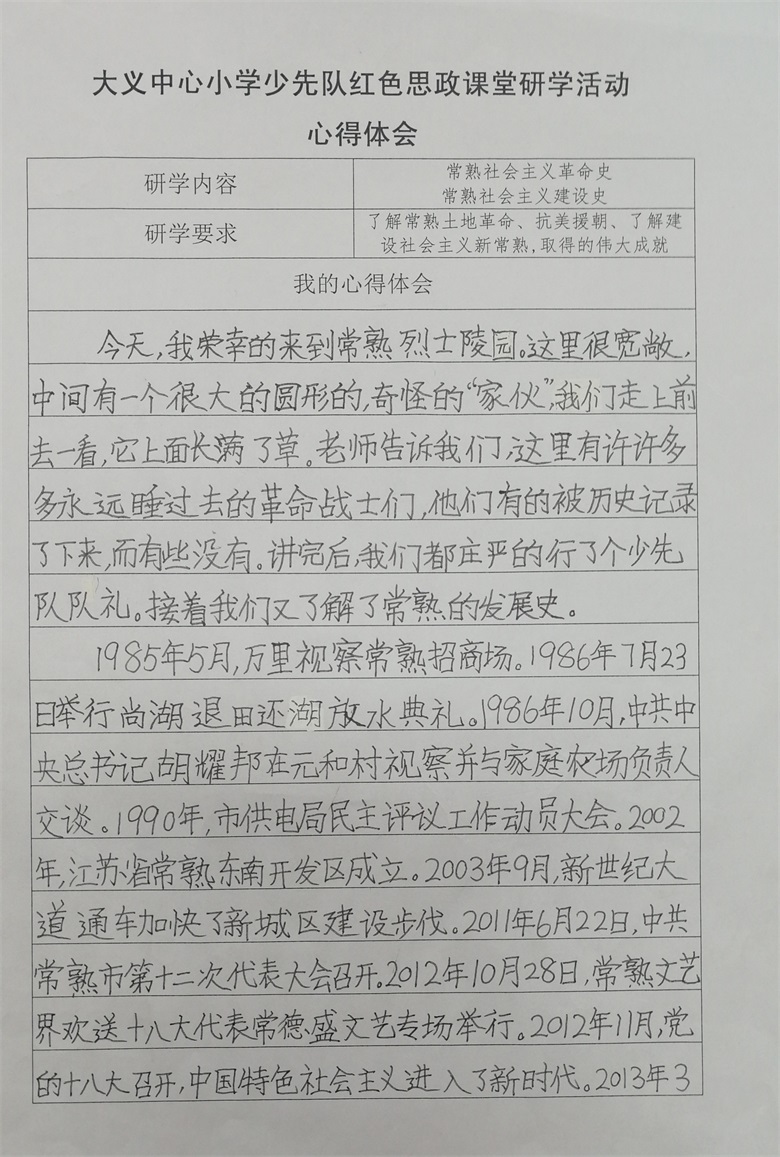 大义中心小学少先队红色思政课堂研学活动
心得体会
研学内容
常熟社会主义革命史
常熟社会主义建设史
研学要求
了解常熟土地革命、抗美援朝、了解建
设社会主义新常熟,取得的伟大成就
我的心得体会
今天,我荣幸的来到常熟烈士陵园。这里很宽敞,
中间有一个很大的圆形的,奇怪的“家伙”,我们走上前
去一看,它上面长满了草。老师告诉我们,这里有许许多
多永远睡过去的革命战士们,他们有的被历史记录
了下来,而有些没有。讲完后,我们都庄严的行了个少先
队队礼。接着我们又了解了常熟的发展史。
1985年5月,万里视察常熟招商场。1986年7月23
日举行尚湖退田还湖放水典礼。1986年10月,中共中
央总书记胡耀邦在元和村视察并与家庭农场负责人
交谈。1990年,市供电局民主评议工作动员大会。2002
年,江苏省常熟东南开发区成立。2003年9月,新世纪大
道通车加快了新城区建设步伐。2011年6月22日,中共
常熟市第十二次代表大会召开。2012年10月28日,常熟文艺
界欢送十八大代表常德盛文艺专场举行。2012年11月,党
的十八大召开,中国特色社会主义进入了新时代。2013年3